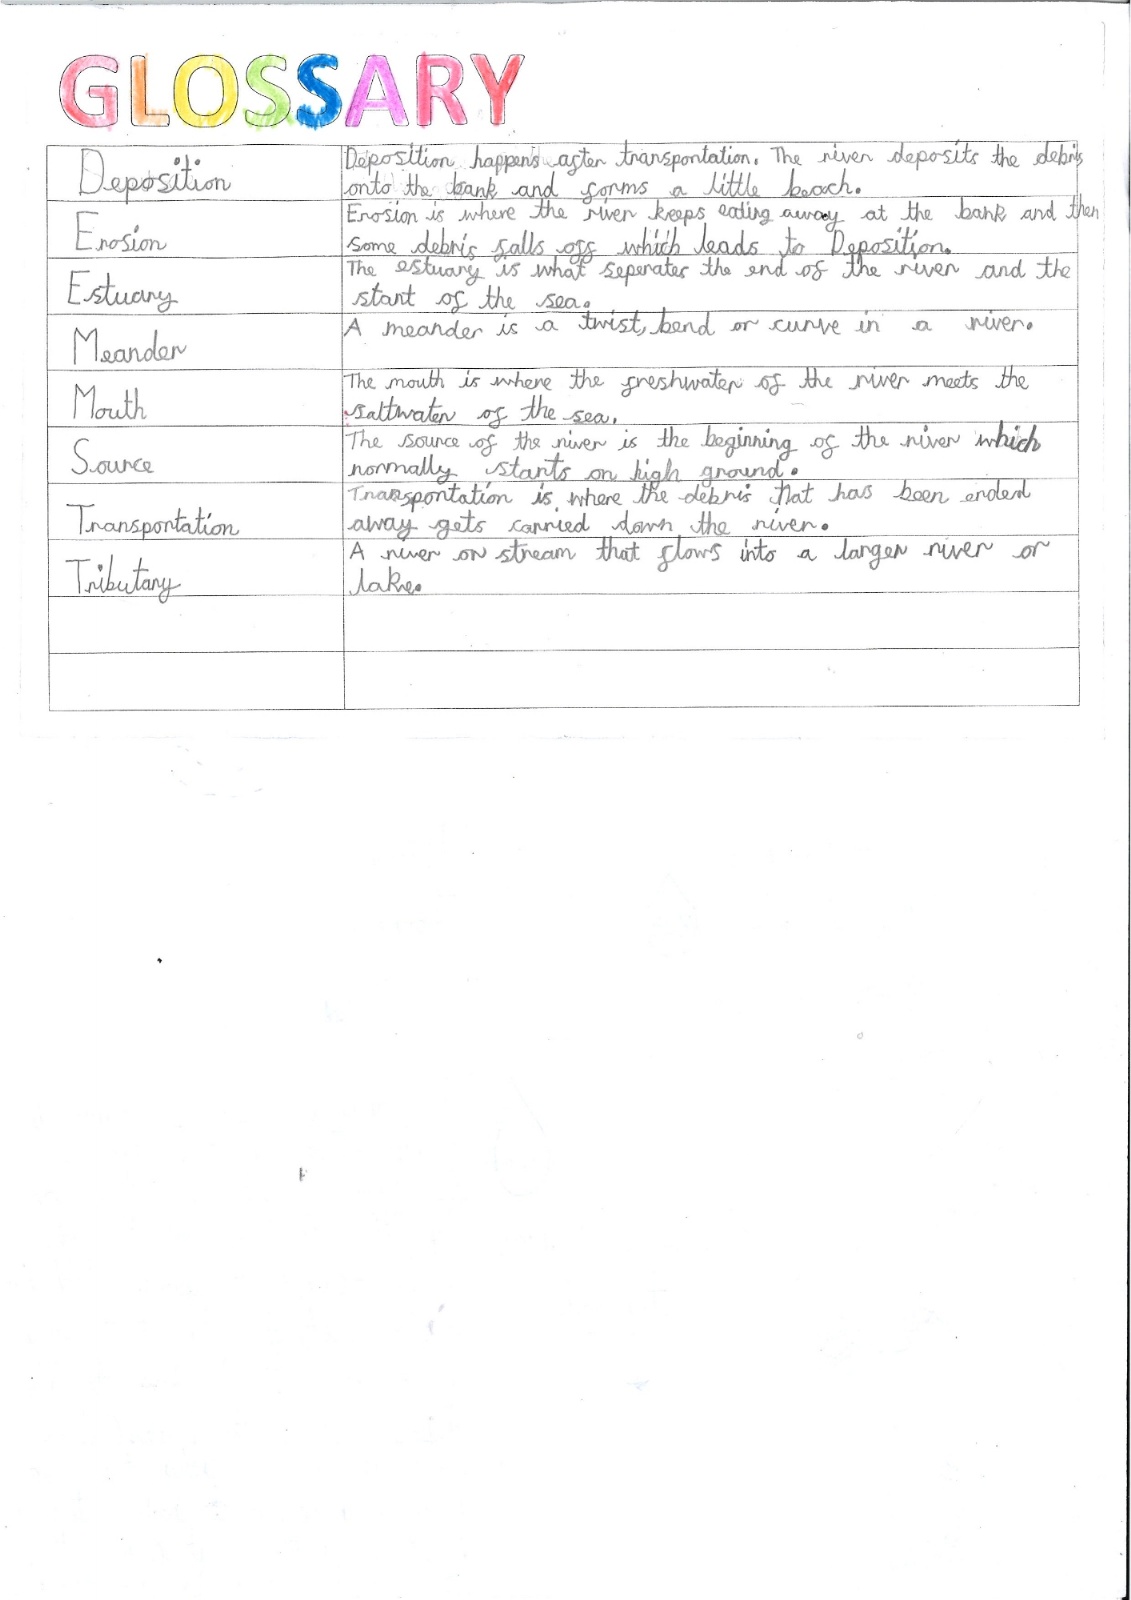 GLOSSARY
Deposition
Deposition happens after transportation. The river deposits the debris
onto the bank and forms a little beach.
Erosion
Erosion is where the river keeps eating away at the bank and then
some debris falls off which leads to Deposition.
Estuary
The estuary is what seperates the end of the river and the
start of the sea.
Meander
A meander is a twist, bend or curve in a river.
Mouth
The mouth is where the freshwater of the river meets the
saltwater of the sea.
Source
The source of the river is the beginning of the river which
normally starts on high ground.
Transportation
Transportation is where the debris that has been eroded
away gets carried down the river.
Tributary
A river or stream that flows into a larger river or
lake.